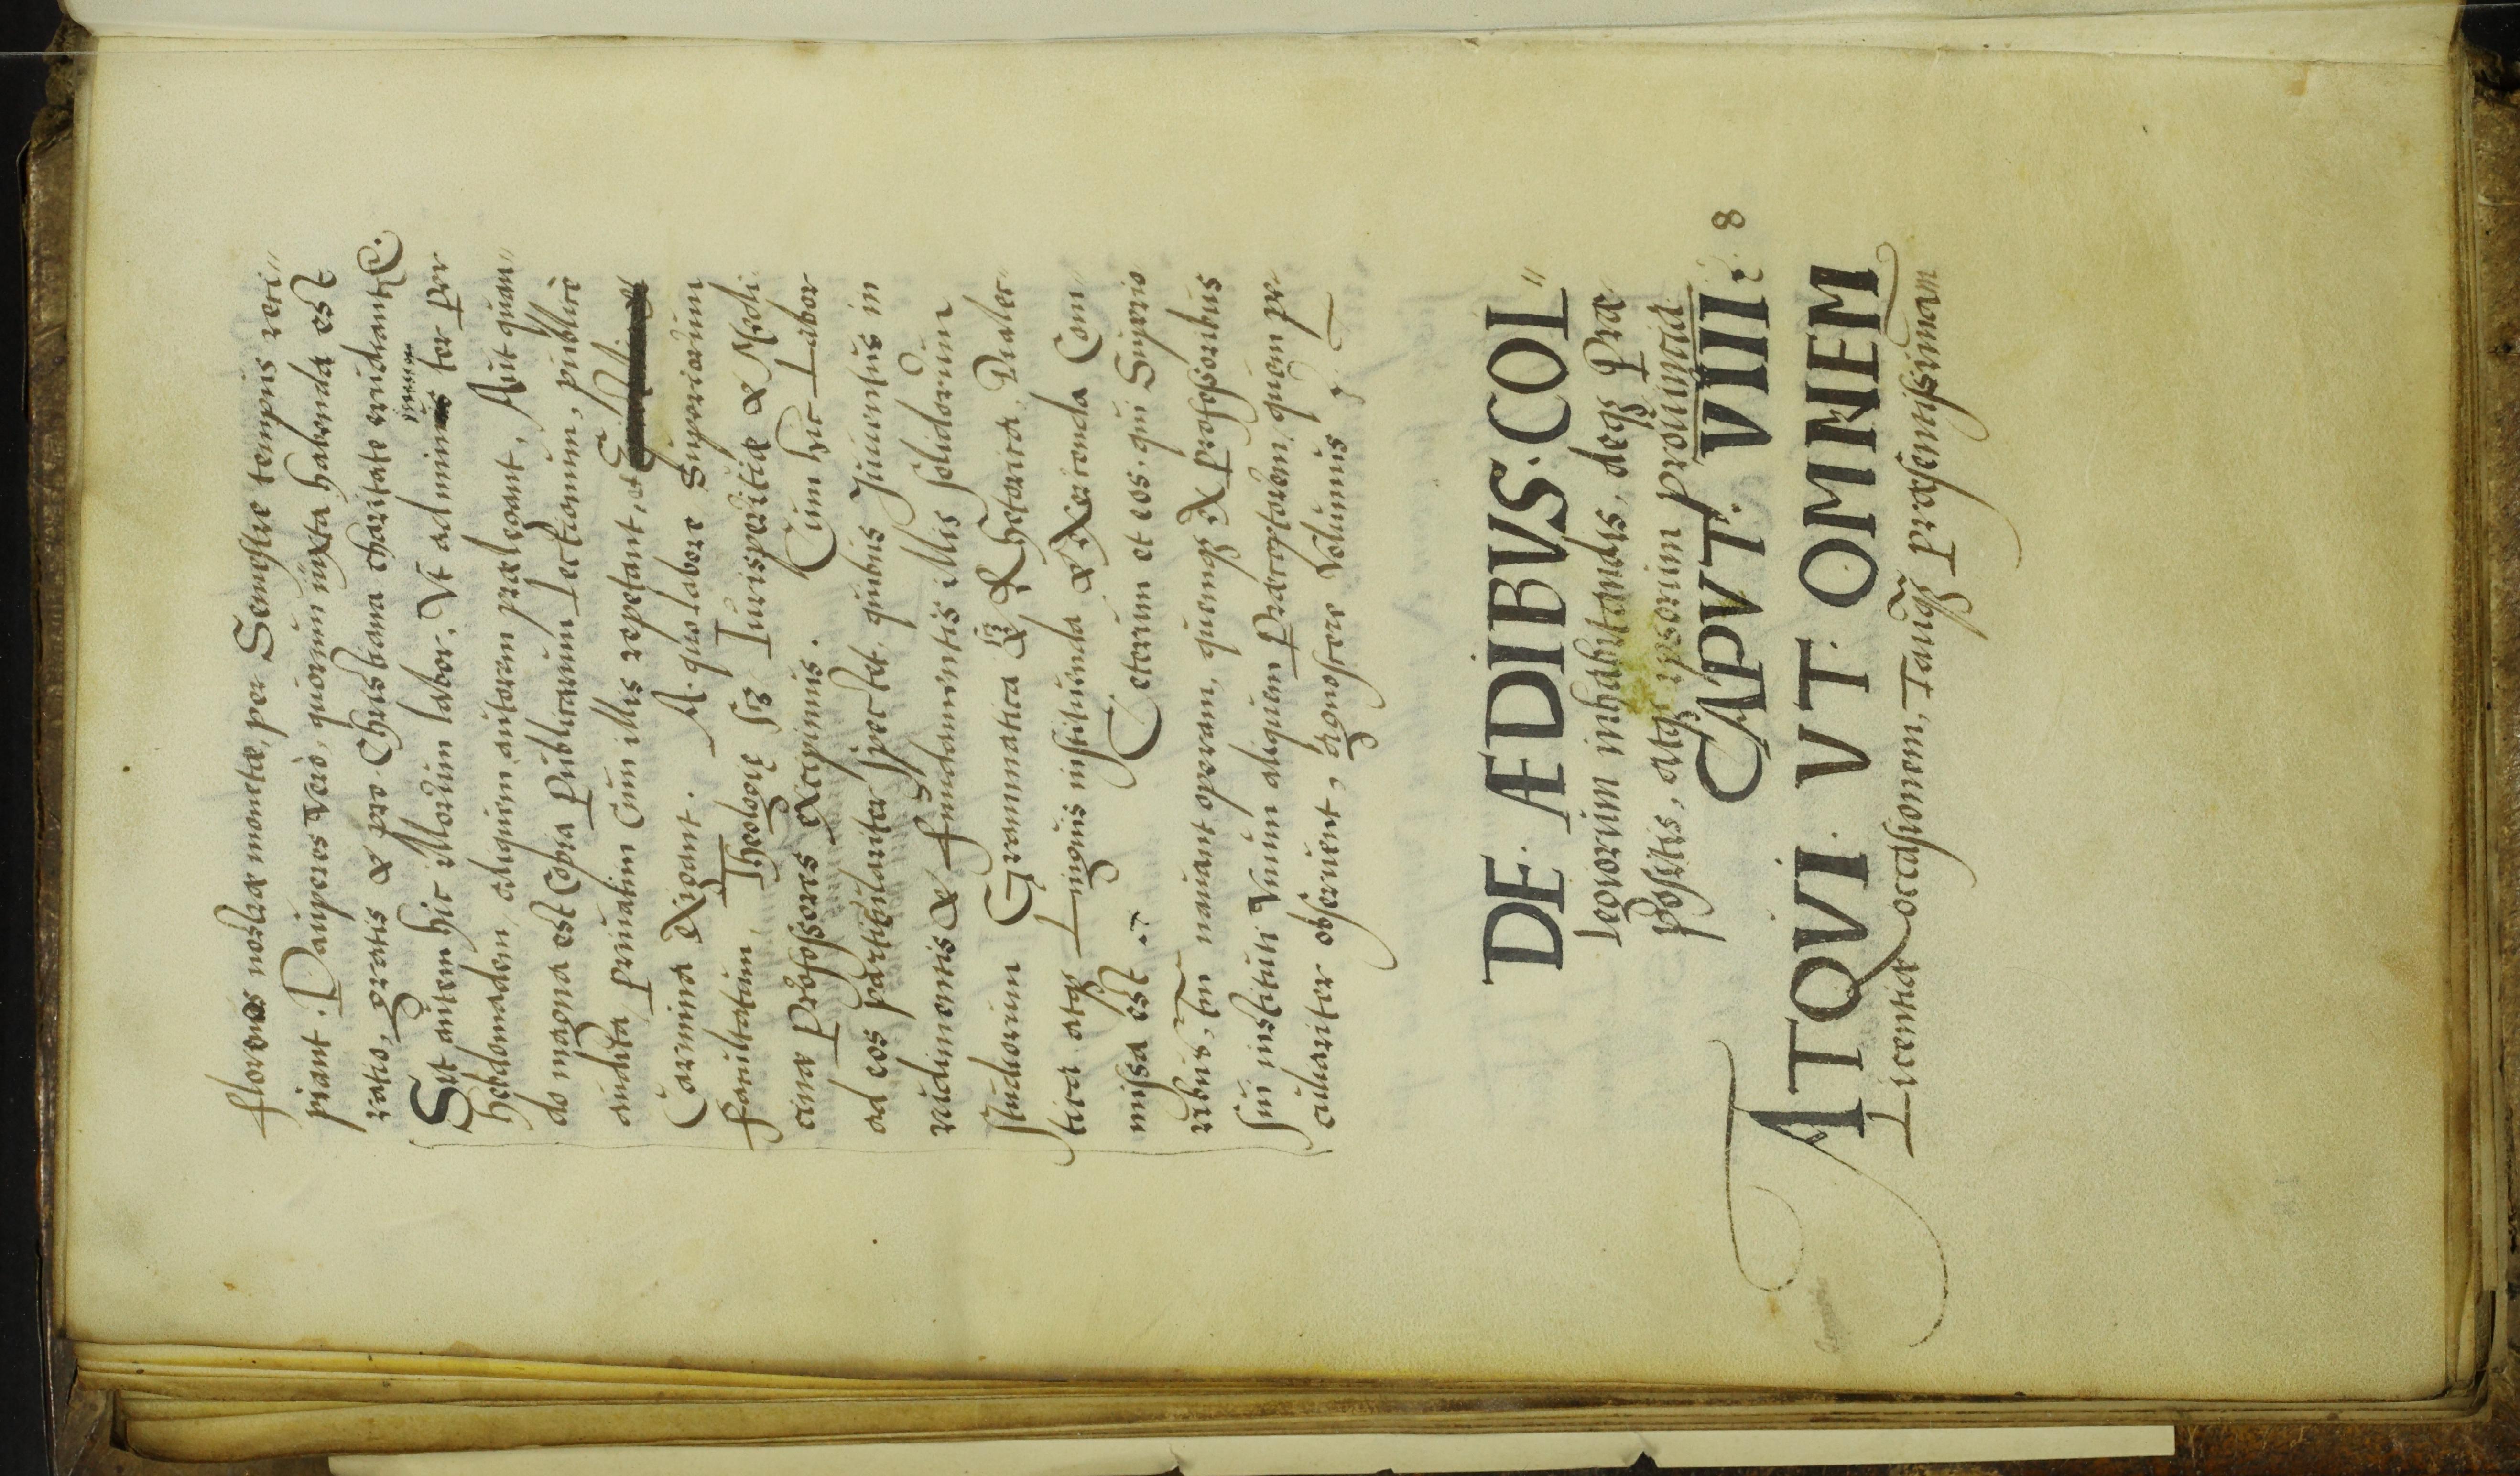 florenos nostræ monetæ, per Semestre tempus reci〃
piant. Pauperes verò, quorum iuxta habenda est
ratio, gratis & pro Christiana charitate erudiantur.
Sit autem hic illorum labor, Vt ad minimum ter per
hebdomadem, aliquem autorem prælegant, Aut quan〃
do magna est Copia publicarum Lectionum, publicè
audita, priuatim Cum illis repetant, et
Carmina exigant. A. quo labore Superiorum
facultatum, Theologię scz Iurisperitiæ & Medi
cinæ Professores excipimus. Cum hic Labor
ad eos particulariter spectet, quibus Iuuentus in
rudimentis & fundamentis illis solidorum
studiorum Grammatica scz, Rhetorica, Dialec
tica atqz Linguis instituenda & exercenda Com
missa est.
Ceterum et eos, qui Superio
ribus, tm nauant operam, quemqz ex professoribus
sui instituti vnum aliquem Præceptorem, quem pe
culiariter obseruent, agnoscere Volumus.
DE ÆDIBVS. COL〃
legiorum inhabitandis, deqz Præ
positis, atqz ipsorum prouincia.
CAPVT. VIII. 8
ATQVI. VT OMNEM
Licentiæ occasionem, Tanqz præsentissimam